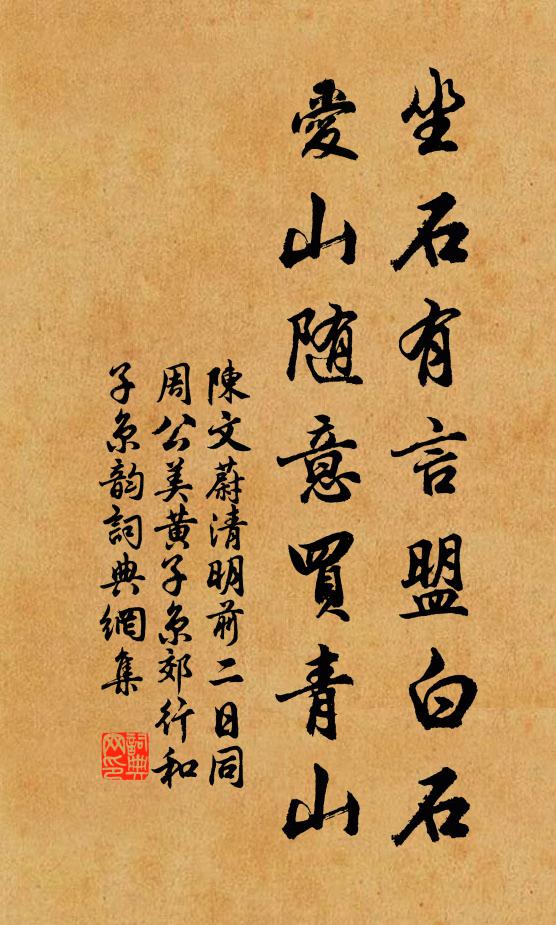 坐石有言盟白石
愛山随意買青山
陳文蔚清明前二日同
周公美黃子京郊行和
子京韵詞典網集
詞典網印